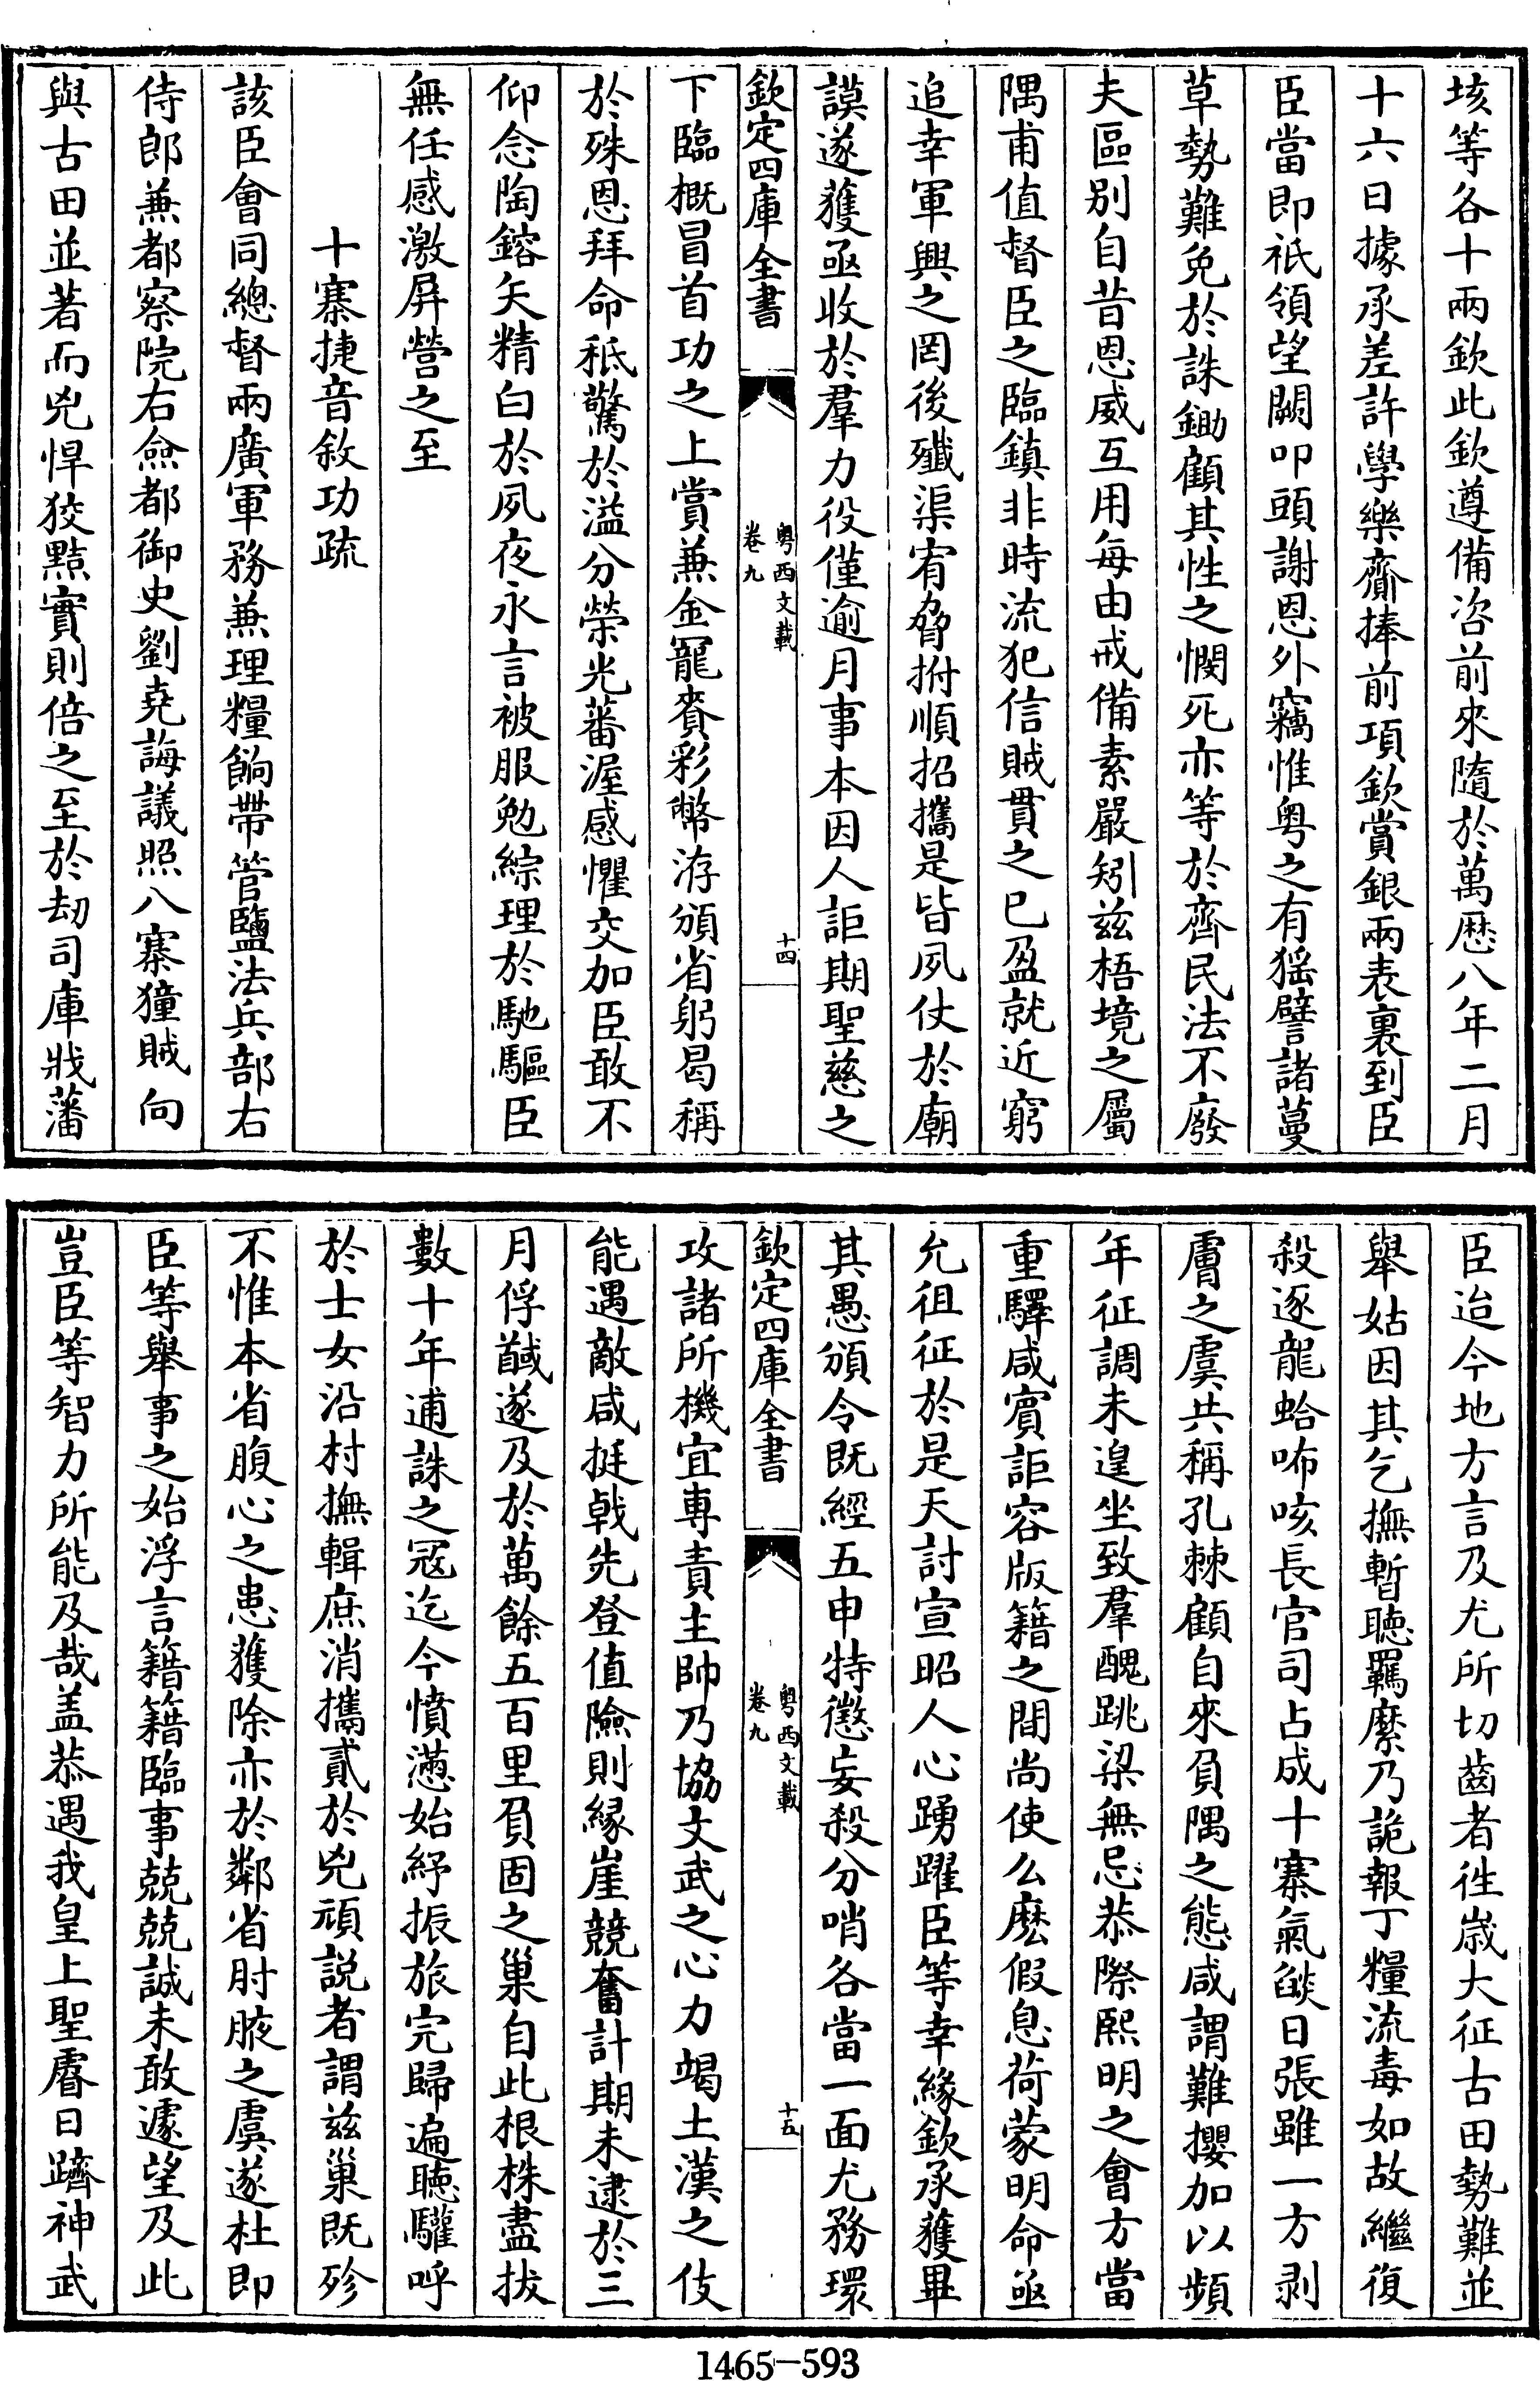 垓等各十兩欽此欽遵備咨前來隨於萬厯八年二月
十六日據承差許學樂齎捧前項欽賞銀兩表裏到臣
臣當即祇領望闕叩頭謝恩外竊惟粤之有猺譬諸蔓
草勢難免於誅鋤顧其性之憫死亦等於齊民法不廢
夫區别自昔恩威互用每由戒備素嚴矧兹梧境之屬
隅甫值督臣之臨鎮非時流犯信賊貫之已盈就近窮
追幸軍興之罔後殱渠宥脅拊順招攜是皆夙仗於廟
謨遂獲亟收於羣力役僅逾月事本因人詎期聖慈之
欽定四庫全書
粤西文載
卷九
十四
下臨概冒首功之上賞兼金寵賚彩幣洊頒省躬曷稱
於殊恩拜命秪驚於溢分榮光蕃渥感懼交加臣敢不
仰念陶鎔矢精白於夙夜永言被服勉綜理於馳驅臣
無任感激屏營之至
十寨捷音敘功疏
該臣會同總督兩廣軍務兼理糧餉帶管鹽法兵部右
侍郎兼都察院右僉都御史劉堯誨議照八寨獞賊向
與古田並著而兇悍狡黠實則倍之至於刧司庫戕藩
臣迨今地方言及尤所切齒者徃歲大征古田勢難並
舉姑因其乞撫暫聽羈縻乃詭報丁糧流毒如故繼復
殺逐龍蛤咘咳長官司占成十寨氣燄日張雖一方剥
膚之虞共稱孔棘顧自來負隅之態咸謂難攖加以頻
年征調未遑坐致羣醜跳梁無忌恭際熙明之會方當
重驛咸賓詎容版籍之間尚使么麽假息荷蒙明命亟
允徂征於是天討宣昭人心踴躍臣等幸緣欽承獲畢
其愚頒令既經五申特懲妄殺分哨各當一面尤務環
欽定四庫全書
粤西文載
卷九
十五
攻諸所機宜專責主帥乃協文武之心力竭土漢之伎
能遇敵咸挺戟先登值險則緣崖競奮計期未逮於三
月俘馘遂及於萬餘五百里負固之巢自此根株盡拔
數十年逋誅之冦迄今憤懣始紓振旅完歸遍聴驩呼
於士女沿村撫輯庶消攜貳於兇頑説者謂兹巢既殄
不惟本省腹心之患獲除亦於鄰省肘腋之虞遂杜即
臣等舉事之始浮言籍籍臨事兢兢誠未敢遽望及此
豈臣等智力所能及哉盖恭遇我皇上聖㽞日躋神武
1465-593